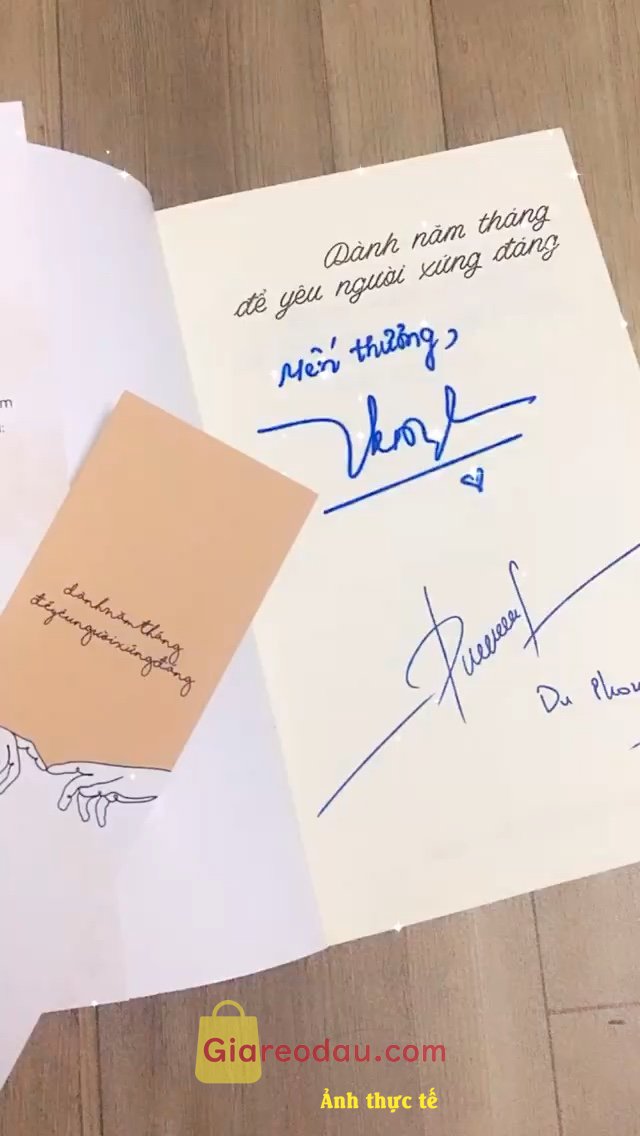 Dành năm tháng
để yêu người xứng đáng
Mến thưởng,
m
:
dành năm tháng
để yêu người xứng đáng
Du Phon
Giareodau.com
Ảnh thực tế